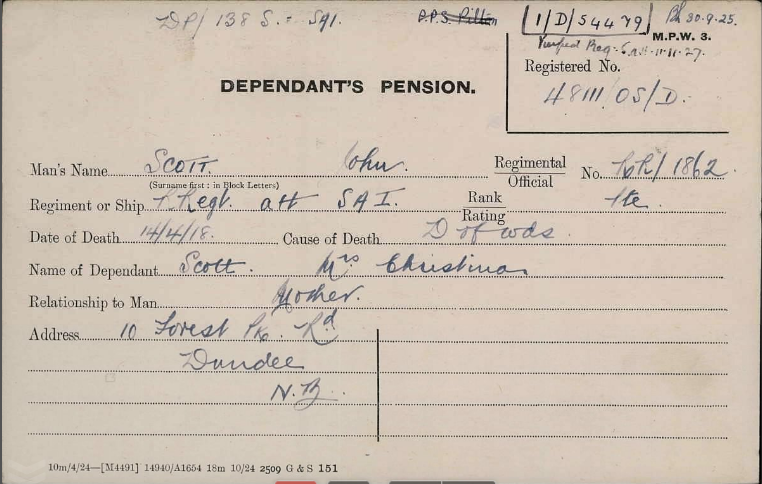 DP/ 138 S. : SAI. D.P.S. 1/D/54479 30.9.25.
M.P.W. 3.
Verified Reg: 11.11.27.
Registered No.
DEPENDANT'S PENSION.
48111/OS/D.
Man's Name Scott. John. Regimental Official No. RR/1862.
(Surname first : in Block Letters)
Regiment or Ship R Regt. att SAI. Rank Rating Pte.
Date of Death 14/4/18. Cause of Death D of wds.
Name of Dependant Scott. Mrs Christina
Relationship to Man Mother.
Address 10 Forest Pk. Rd
Dundee
N.B.
10m/4/24—[M4491] 14940/A1654 18m 10/24 2509 G & S 151